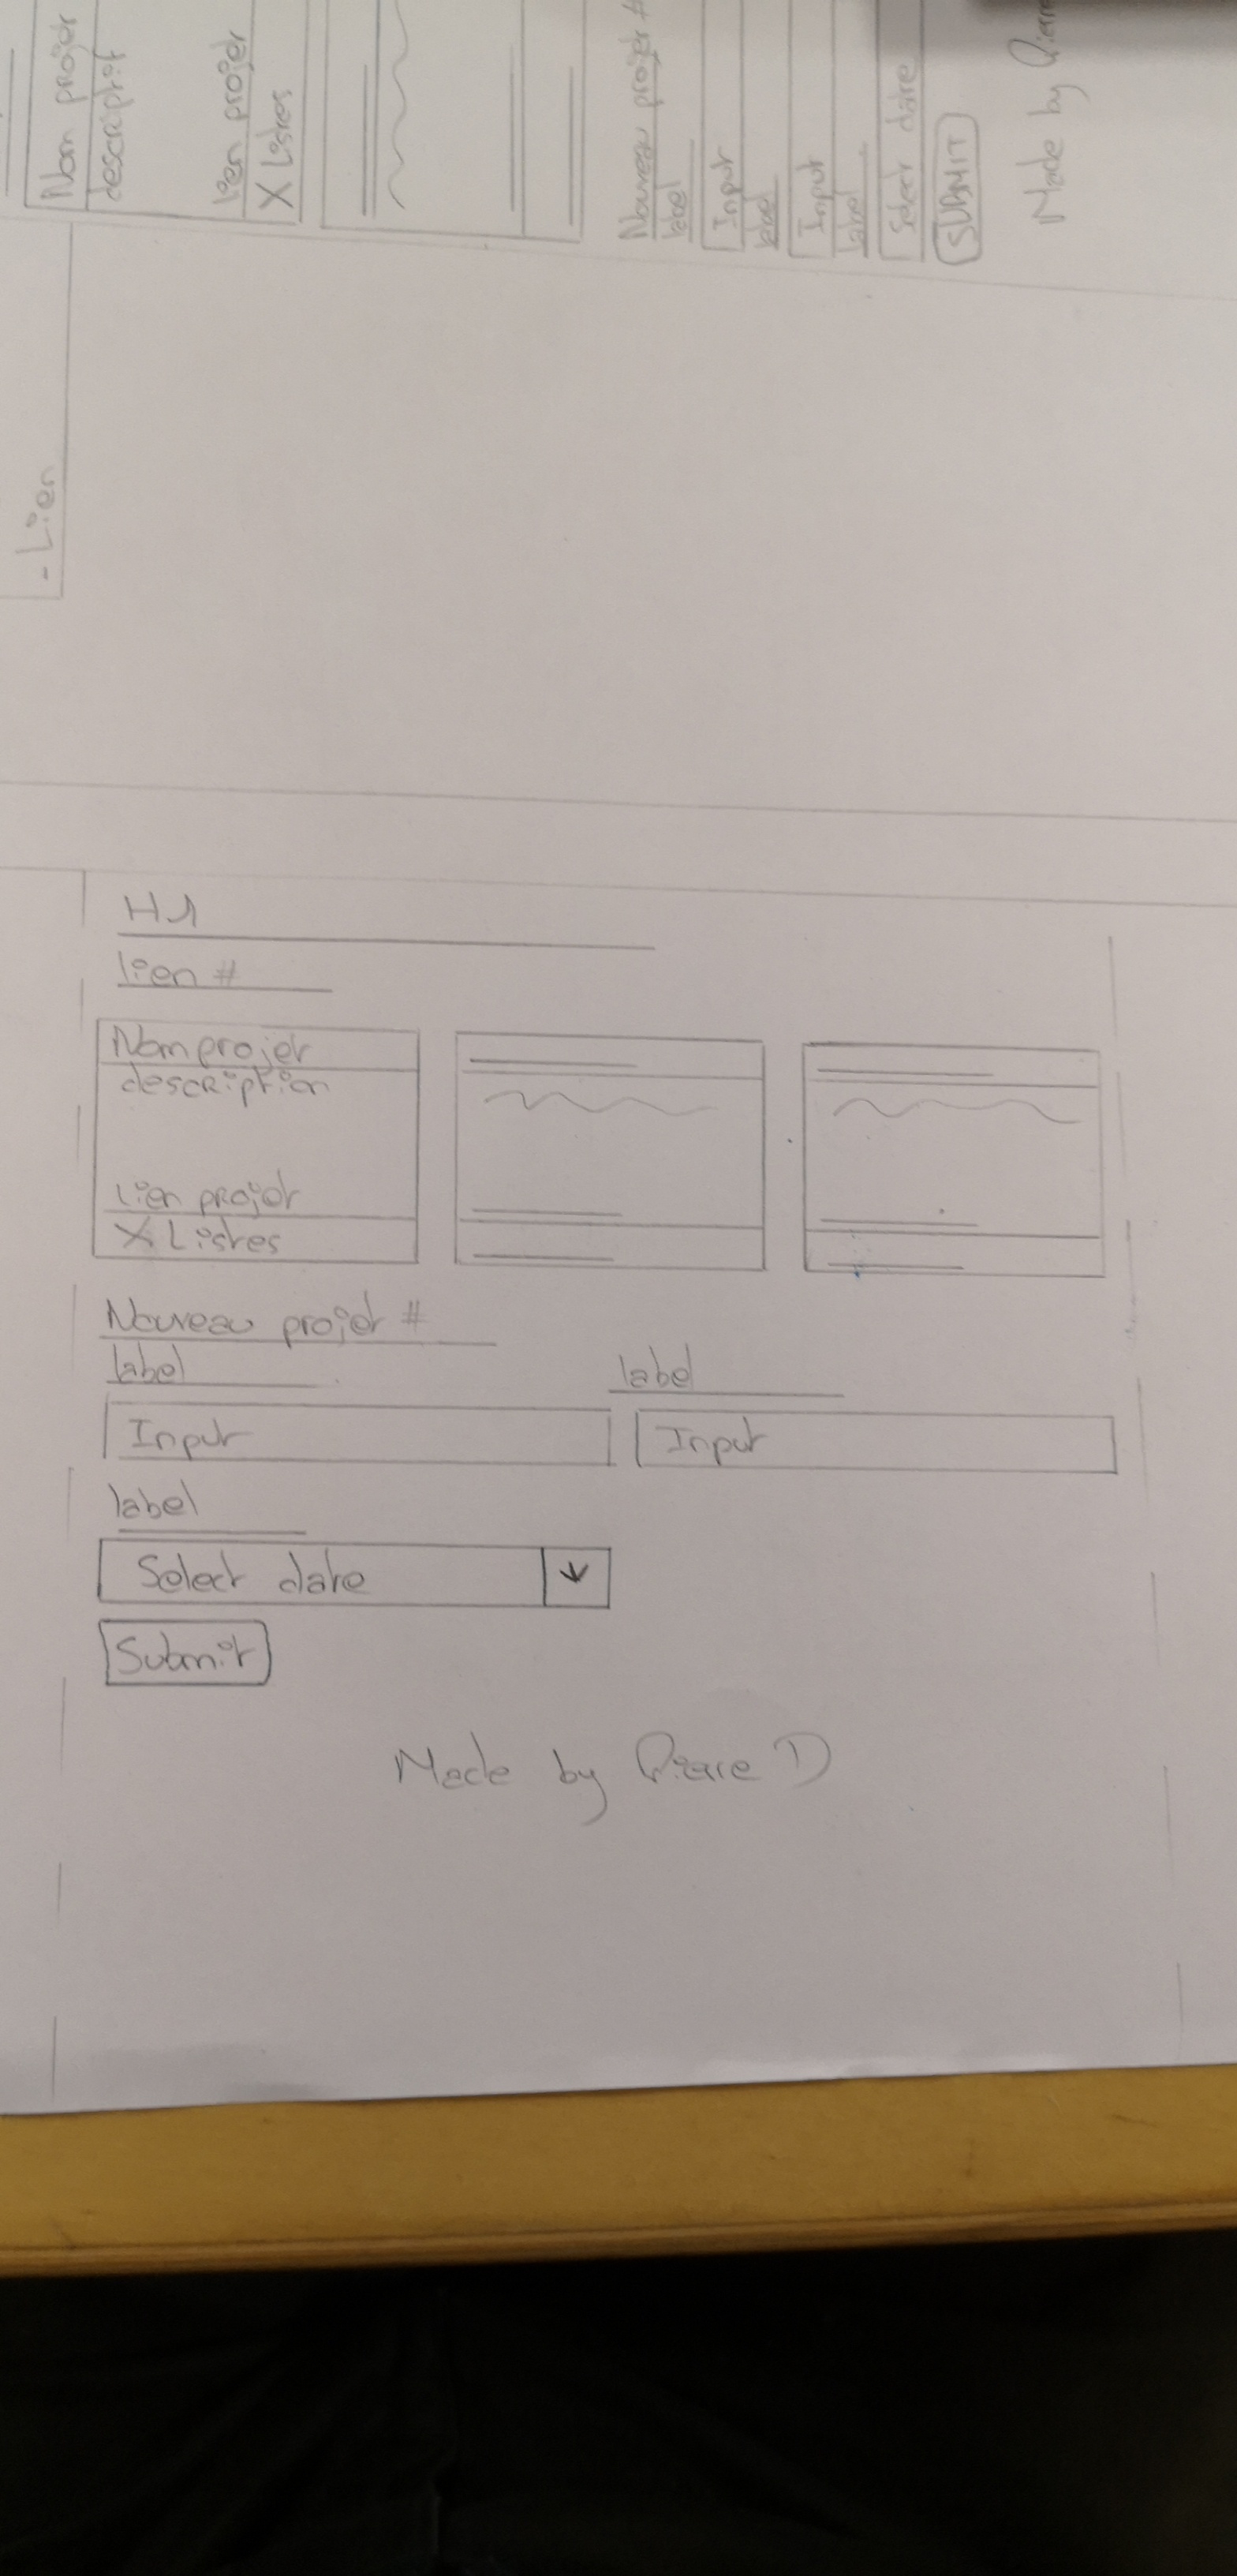 Nom projet
descriptif
lien projet
X Listes
Nouveau projet #
label
Input
label
Input
label
Select date
SUBMIT
Made by Pierre
- Lien
H1
lien #
Nom projet
description
Lien projet
X Listes
Nouveau projet #
label label
Input Input
label
Select date
Submit
Made by Pierre D